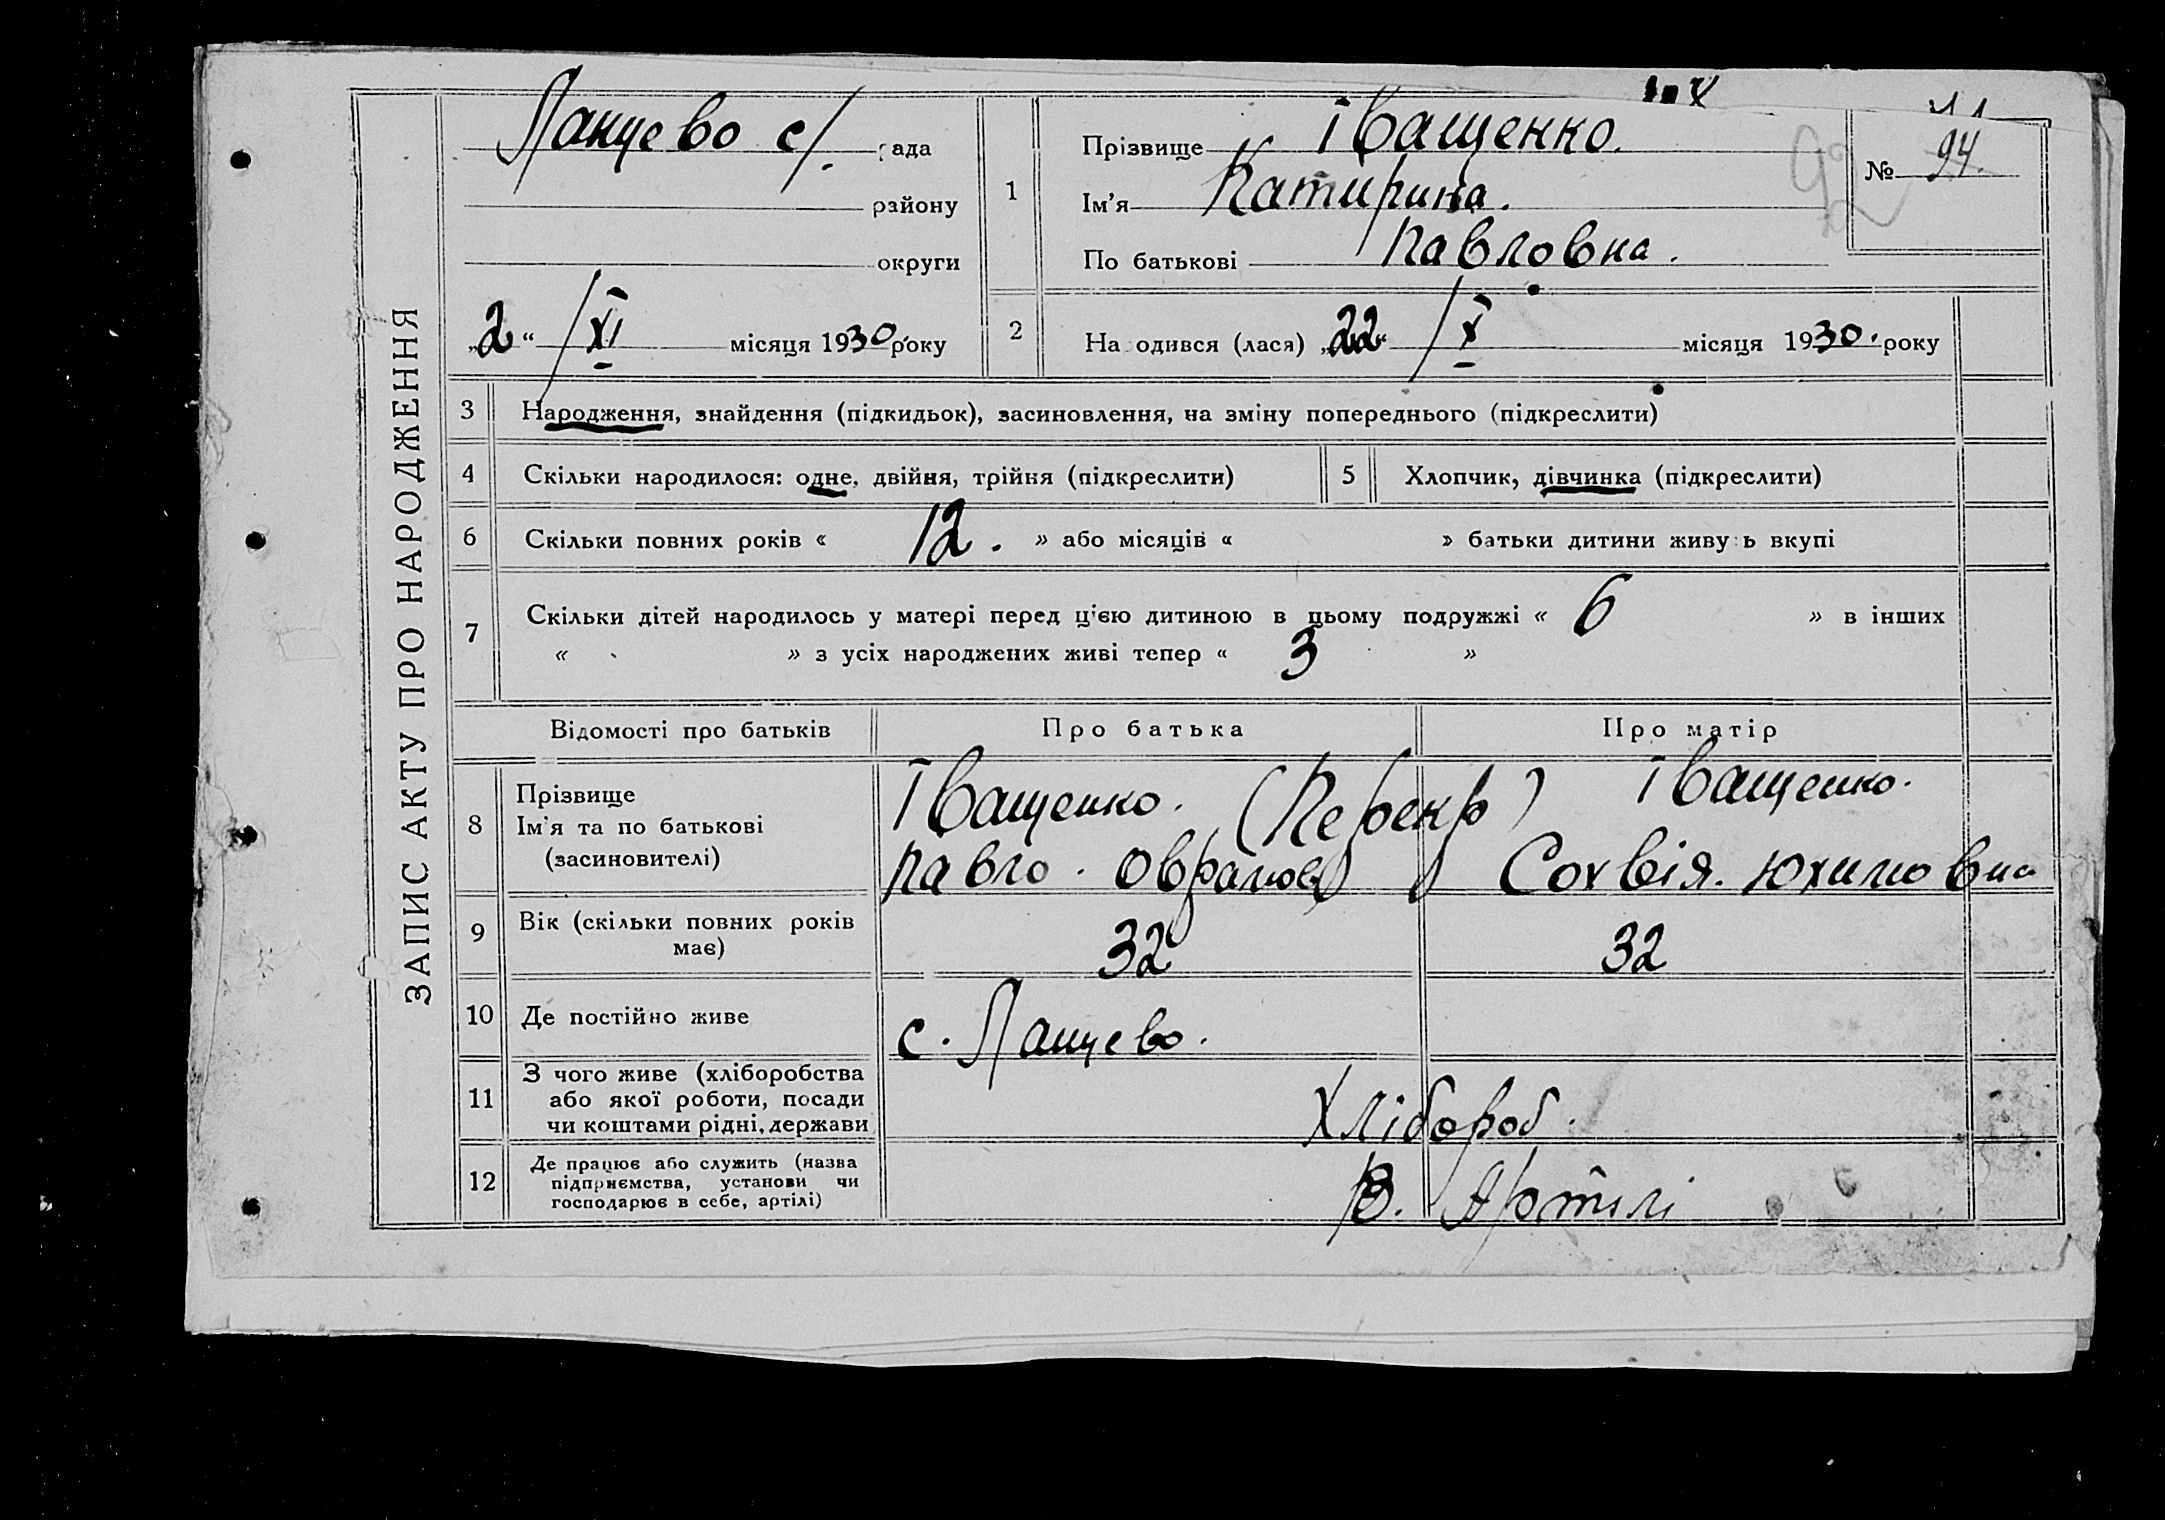 ЗАПИС АКТУ ПРО НАРОДЖЕННЯ
Ланцево с/. рада
району
округи
„2“ /XI місяця 1930 року
1
Прізвище Іващенко.
Ім'я Катирина.
По батькові Павловна.
№ 94.
92
2 Народився (лася) „22“ /X місяця 1930. року
3 Народження, знайдення (підкидьок), засиновлення, на зміну попереднього (підкреслити)
4 Скільки народилося: одне, двійня, трійня (підкреслити) 5 Хлопчик, дівчинка (підкреслити)
6 Скільки повних років « 12. » або місяців « » батьки дитини живуть вкупі
7 Скільки дітей народилось у матері перед цією дитиною в цьому подружжі « 6 » в інших
« » з усіх народжених живі тепер « 3 »
Відомості про батьків Про батька Про матір
8 Прізвище
Ім'я та по батькові
(засиновителі)
Іващенко.
Павло.
Іващенко.
Юхимовна
9 Вік (скільки повних років має) 32 32
10 Де постійно живе с. Ланцево.
11 З чого живе (хліборобства
або якої роботи, посади
чи коштами рідні, держави
Хлібороб.
12 Де працює або служить (назва
підприємства, установи чи
господарює в себе, артілі)
В. Артилі